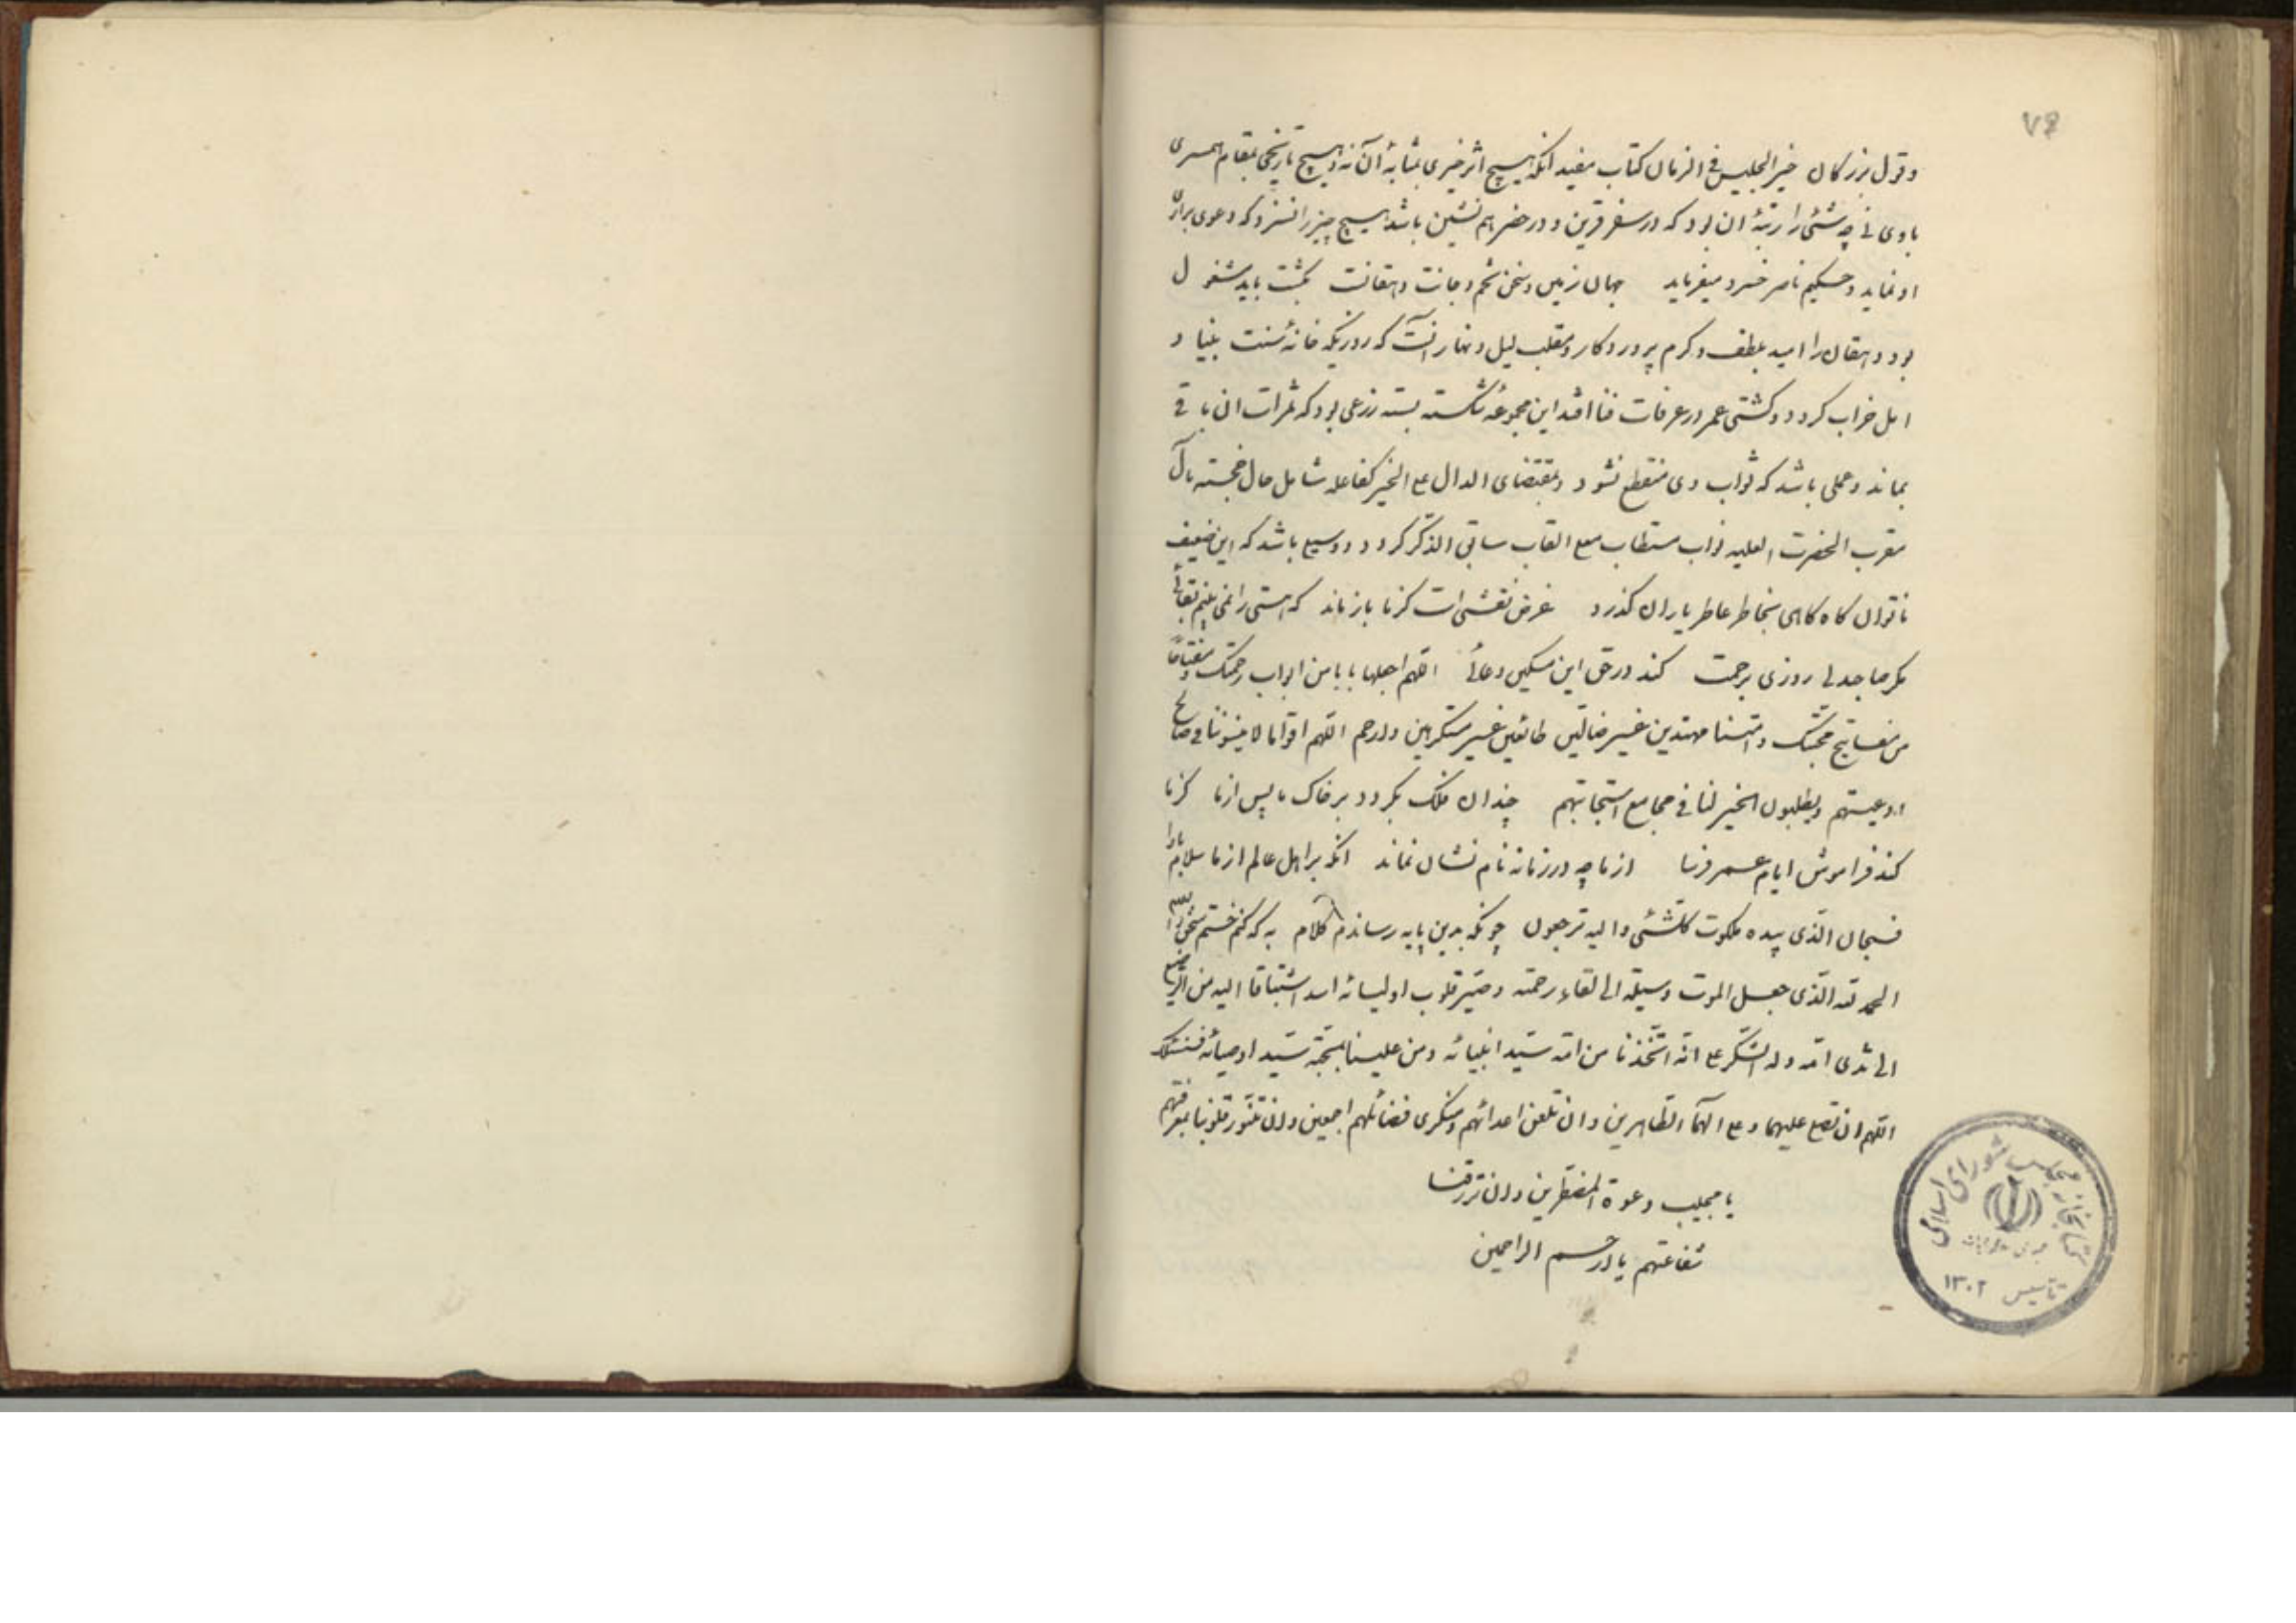 ۷۶
وقول بزرگان خیر الجلیس فی الزمان کتاب مفید انکه هیچ اثر خیری بمثابهٔ آن نه و هیچ تاریخی بمقام همسری
با وی نی چه شئی را رتبهٔ ان بود که در سفر قرین و در حضر هم نشین باشد هیچ چیز را نسزد که دعوی برابری
او نماید و حکیم ناصر خسرو میفرماید جهان زمین و سخن تخم و جانت دهقانت بکشت باید مشغول
بود دهقان را امید بلطف و کرم پروردگار و مقلب لیل و نهار انست که روزیکه خانهٔ سست بنیاد
امل خراب کردد و کشتی عمر در غرقات فنا افتد این مجموعهٔ شکسته بسته زرعی بود که ثمرات ان باقی
بماند و عملی باشد که ثواب وی منقطع نشود و بمقتضای الدال علی الخیر کفاعله شامل حال خجسته مآل
مقرب الحضرت العلیه نواب مستطاب معلی القاب سابق الذکر کردد و وسیله باشد که این ضعیف
ناتوان گاه گاهی بخاطر عاطر یاران گذرد غرض نقشی است کز ما باز ماند که هستی را نمی بینم بقائی
مگر صاحبدلی روزی برحمت کند در حق این مسکین دعائی اللهم اجعلها بابا من ابواب رحمتک و مفتاحاً
من مفاتیح محبتک و امتنا مهتدین غیر ضالین طائعین غیر مستکرهین وارحم اللهم اقواما لا ینسوننا فی صالح
ادعیتهم ویطلبون الخیر لنا فی مجامع استجابتهم چندان فلک بگردد بر خاک ما پس از ما کز ما
کند فراموش ایام عمر فرسا از ما چه در زمانه نام نشان نماند انکه بر اهل عالم از ما سلام بادا
فسبحان الذی بیده ملکوت کلشئی والیه ترجعون چونکه بدین پایه رساندم کلام به که کنم ختم سخن والسلام
الحمد لله الذی جعل الموت وسیلة الی لقاء رحمته وصیر قلوب اولیائه اشد اشتیاقا الیه من الرضیع
الی ثدی امه وله الشکر علی انه اتخذنا من امة سید انبیائه ومن علینا بمحبة سید اوصیائه فنسئلک
اللهم ان تصلی علیهما وعلی الهما الطاهرین وان تلعن اعدائهم ومنکری فضائلهم اجمعین وان تنور قلوبنا بمعرفتهم
یا مجیب دعوة المضطرین وان ترزقنا
شفاعتهم یا ارحم الراحمین
کتابخانه مجلس شورای اسلامی
تاسیس ۱۳۰۲